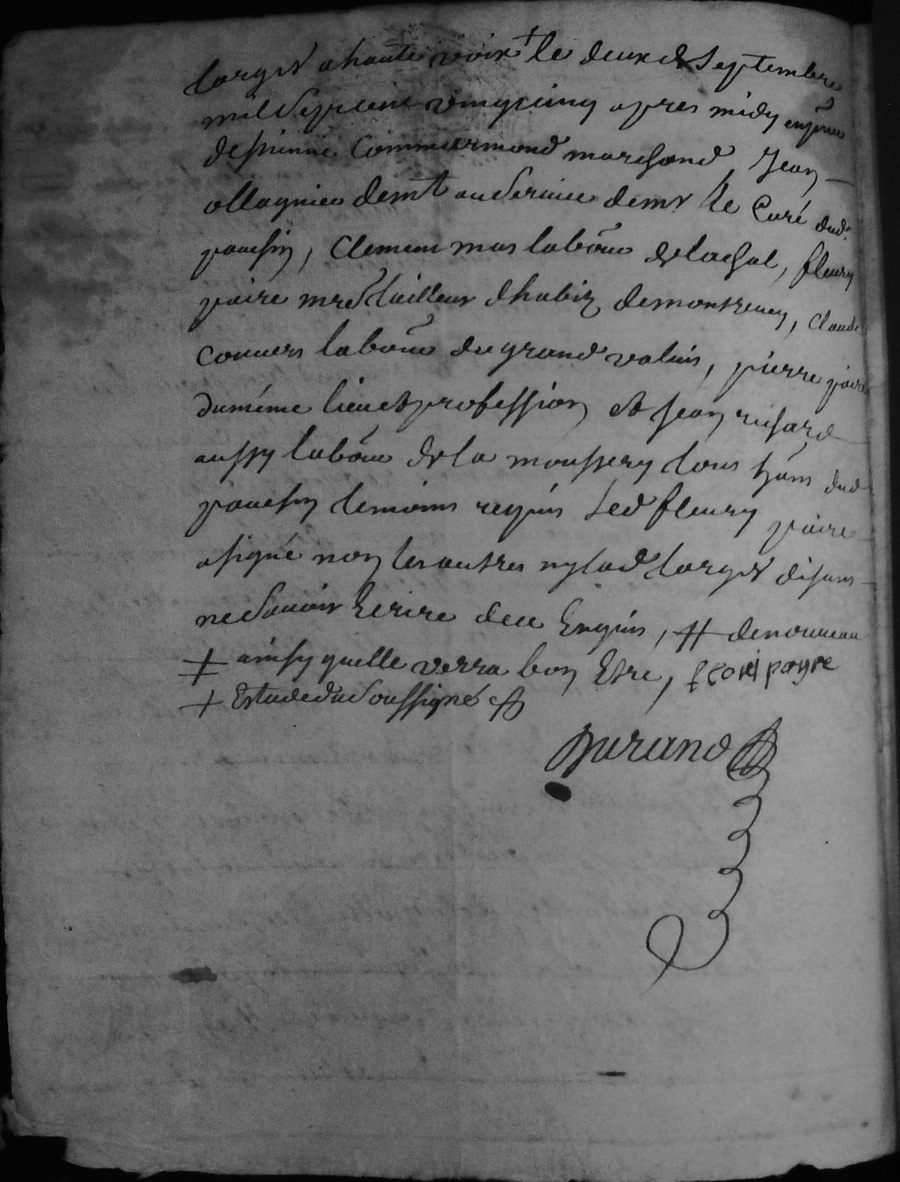 Larger a haute voix + le deux de Septembre
mil Sept cent vingt cinq apres midy en pnce
de pierre Commarmond marchand Jean
ollagnier demt au Service de mr le Curé dud.
, Clement mas labour de lachal, fleury
paire mre tailleur dhabiz de montreney, Claude
Couners labour du grand , pierre paire
du méme lieu et profession et Jean richard
aussy labour de la moussery tous hans dud
temoins requis Led fleury paire
a signé non les autres ny lad Larger disans
ne Savoir Ecrire de ce Enquis, # de nouveau
‡ ainsy quelle verra bon Etre, payre
+ Estude du Soussigné
Durand